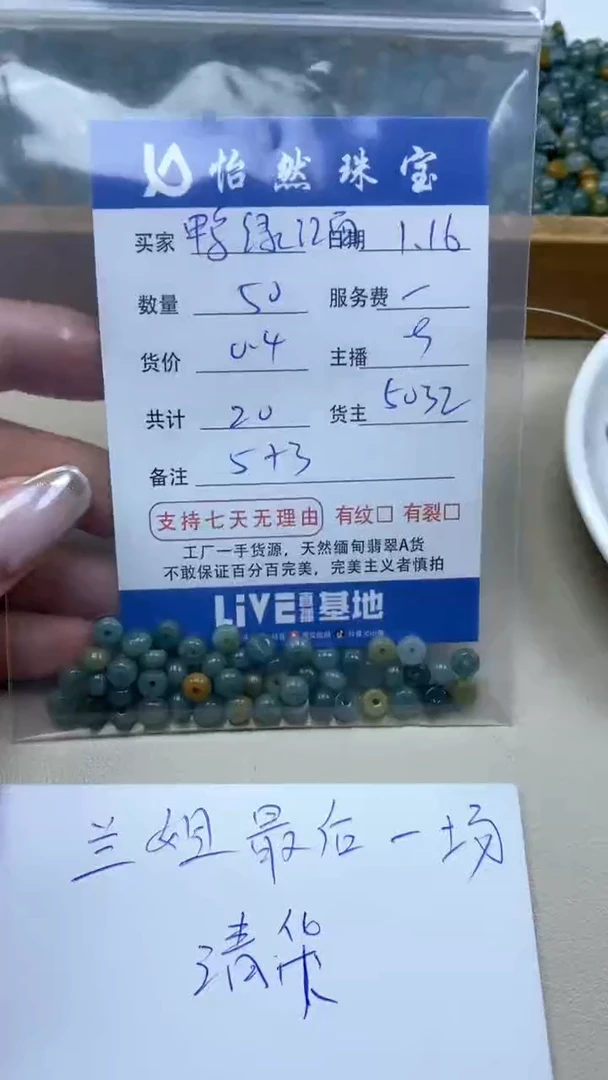 怡然珠宝
买家 鸭绿江面 日期 1.16
数量 50 服务费 /
货价 0.4 主播
共计 20 货主 5032
备注 5+3
支持七天无理由 有纹□ 有裂□
工厂一手货源，天然缅甸翡翠A货
不敢保证百分百完美，完美主义者慎拍
LiVE直播基地
兰姐最后一场
清货